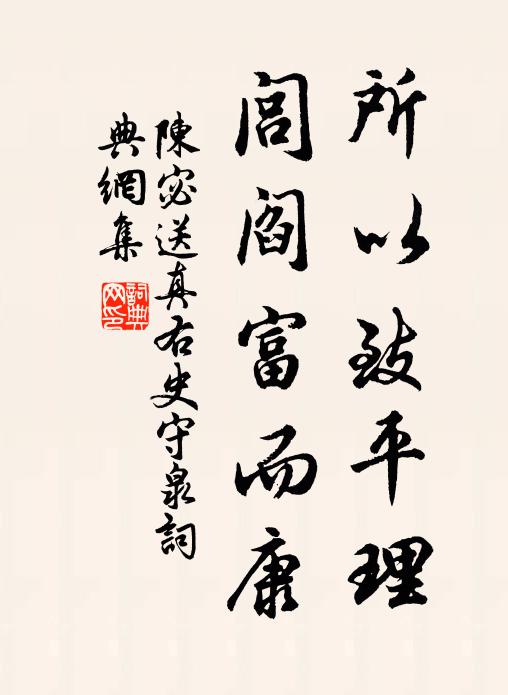 所以致平理
閭閻富而康
陳宓送真右史守泉詞
典網集
詞典網印